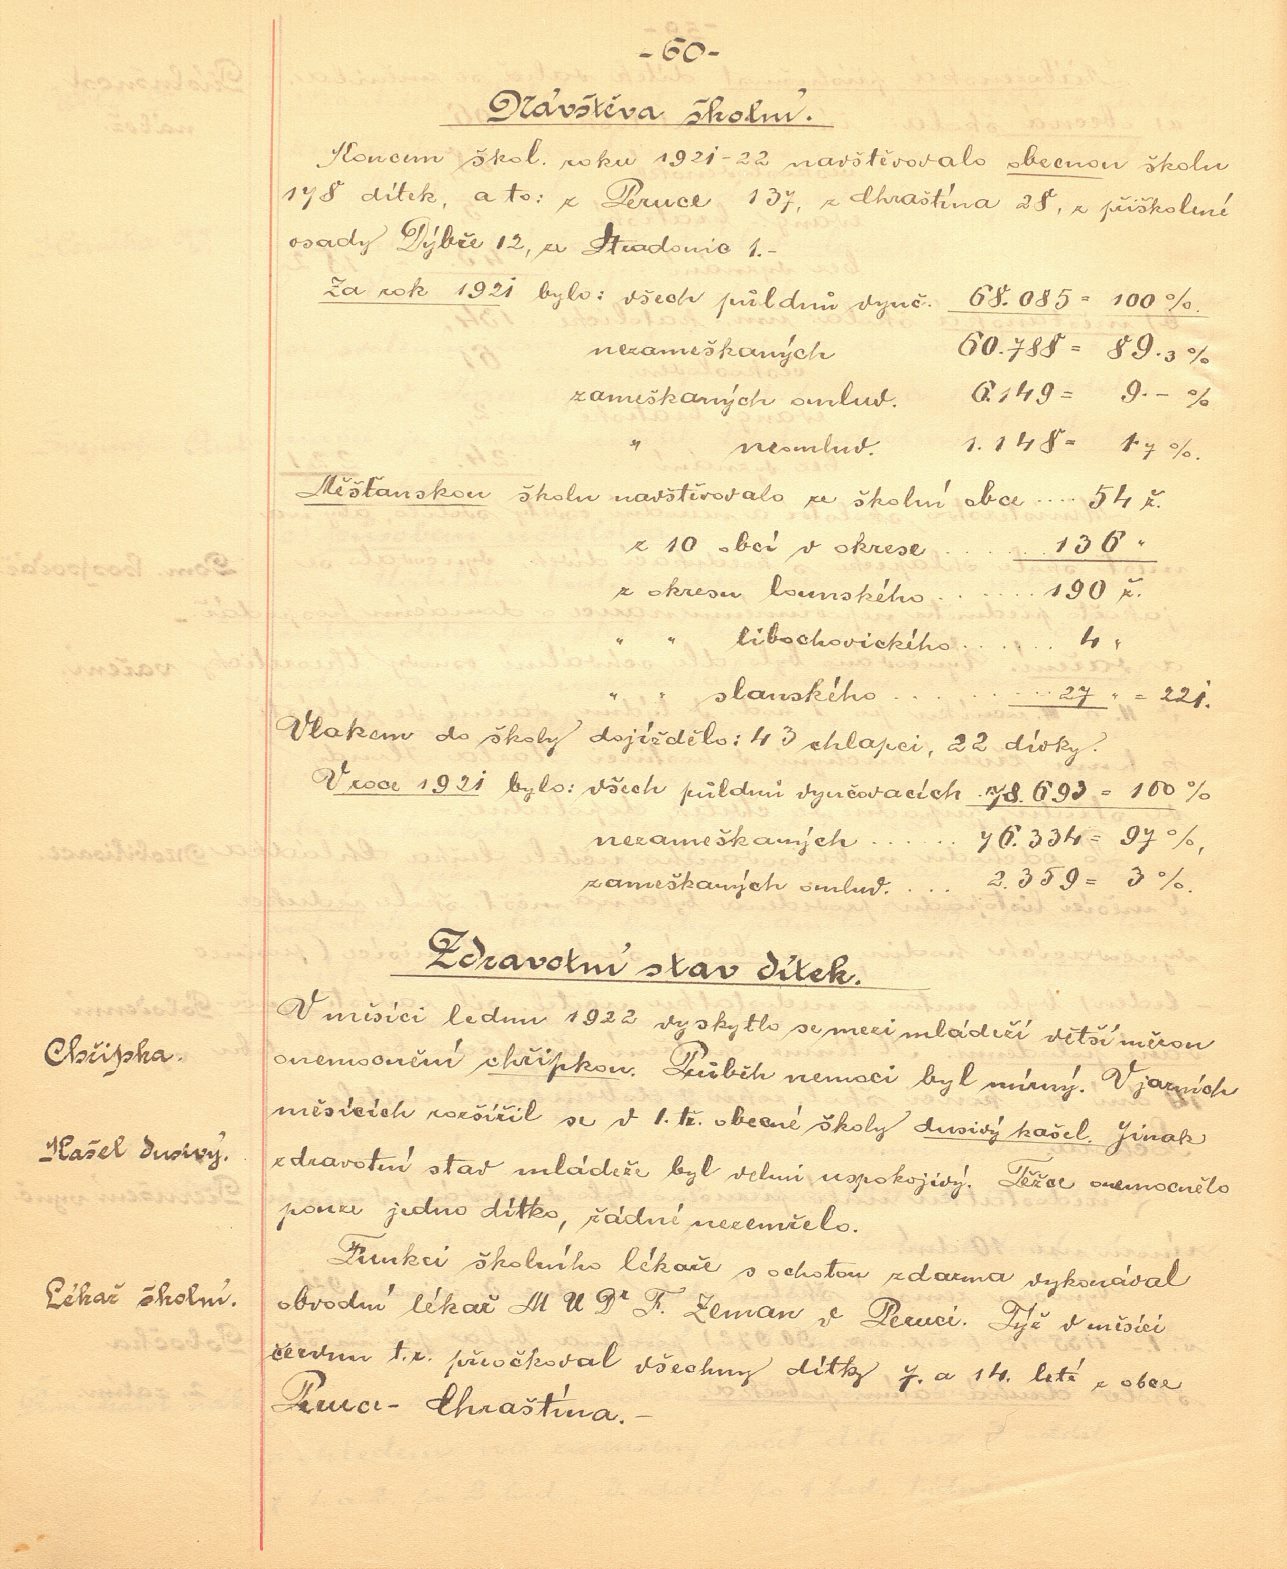 -60-
Návštěva školní.
Koncem škol. roku 1921-22 navštěvovalo obecnou školu
178 dítek, a to: z Peruce 137, z Chraštína 28, z přiškolené
osady Dýbře 12, ze Stradonic 1.-
Za rok 1921 bylo: všech půldnů vyuč. 68.085 = 100 %.
nezameškaných 60.788 = 89.3 %
zameškaných omluv. 6.149 = 9.- %
" neomluv. 1.148 = 1.7 %.
Měšťanskou školu navštěvovalo ze školní obce .... 54 ž.
z 10 obcí v okrese ...... 136 "
z okresu lounského ...... 190 ž.
" " libochovického ...... 4 "
" " slanského ........ 27 " = 221.
Vlakem do školy dojíždělo: 43 chlapci, 22 dívky.
V roce 1921 bylo: všech půldnů vyučovacích 78.693 = 100 %
nezameškaných ...... 76.334 = 97 %,
zameškaných omluv. ... 2.359 = 3 %.
Zdravotní stav dítek.
V měsíci lednu 1922 vyskytlo se mezi mládeží větší měrou
Chřipka.
onemocnění chřipkou. Průběh nemoci byl mírný. V jarních
měsících rozšířil se v 1. tř. obecné školy dusivý kašel. Jinak
Kašel dusivý.
zdravotní stav mládeže byl velmi uspokojivý. Těžce onemocnělo
pouze jedno dítko, žádné nezemřelo.
Funkci školního lékaře s ochotou zdarma vykonával
Lékař školní.
obvodní lékař MUDr F. Zeman v Peruci. Týž v měsíci
červnu t.r. přeočkoval všechny dítky 7. a 14. leté z obce
Peruc - Chraštína.-